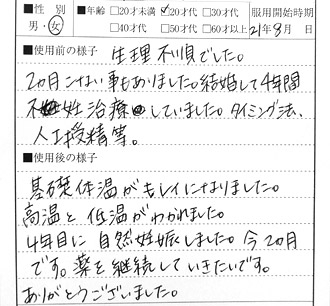 ■性別 ■年齢 □20才未満 ☑20才代 □30才代 服用開始時期
男・女 □40才代 □50才代 □60才以上 21年9月 日
■使用前の様子 生理不順でした。
2ヵ月こない事もありました。結婚して4年間
不妊治療していました。タイミング法、
人工授精等。
■使用後の様子
基礎体温がキレイになりました。
高温と低温がわかれました。
4年目に自然妊娠しました。今2ヵ月
です。薬を継続していきたいです。
ありがとうございました。